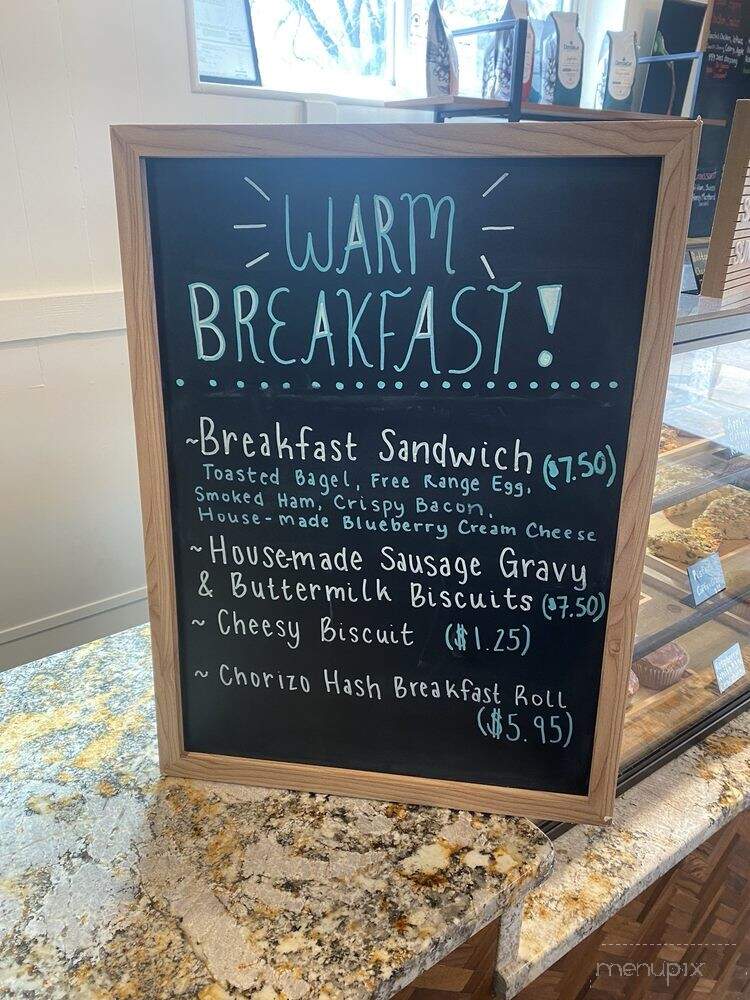 WARM
BREAKFAST!
~Breakfast Sandwich ($7.50)
Toasted Bagel, Free Range Egg,
Smoked Ham, Crispy Bacon,
House-made Blueberry Cream Cheese
~House-made Sausage Gravy
& Buttermilk Biscuits ($7.50)
~ Cheesy Biscuit ($1.25)
~ Chorizo Hash Breakfast Roll
($5.95)
menupix